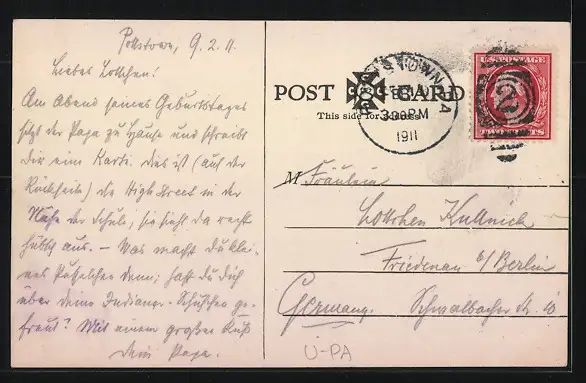 Pottstown, 9.2.11.
Liebes Lottchen!
Am Abend seines Geburtstages
sitzt der Papa zu Hause und schreibt
dir eine Karte. Dies ist (auf der
Rückseite) die High Street in der
Nähe der Schule, sie sieht da recht
hübsch aus. – Was macht du klei-
nes denn; hast du dich
über deine Indianer-Schühchen ge-
freut? Mit einem großen Kuß
dein Papa.
POST CARD
This side for Address
POTTSTOWN PA
FEB
3 30 PM
1911
U.S. POSTAGE
2
TWO CENTS
M Fräulein
Lottchen Kullnick
Friedenau b/Berlin
Germany. Schwalbacher Str. 10
U-PA